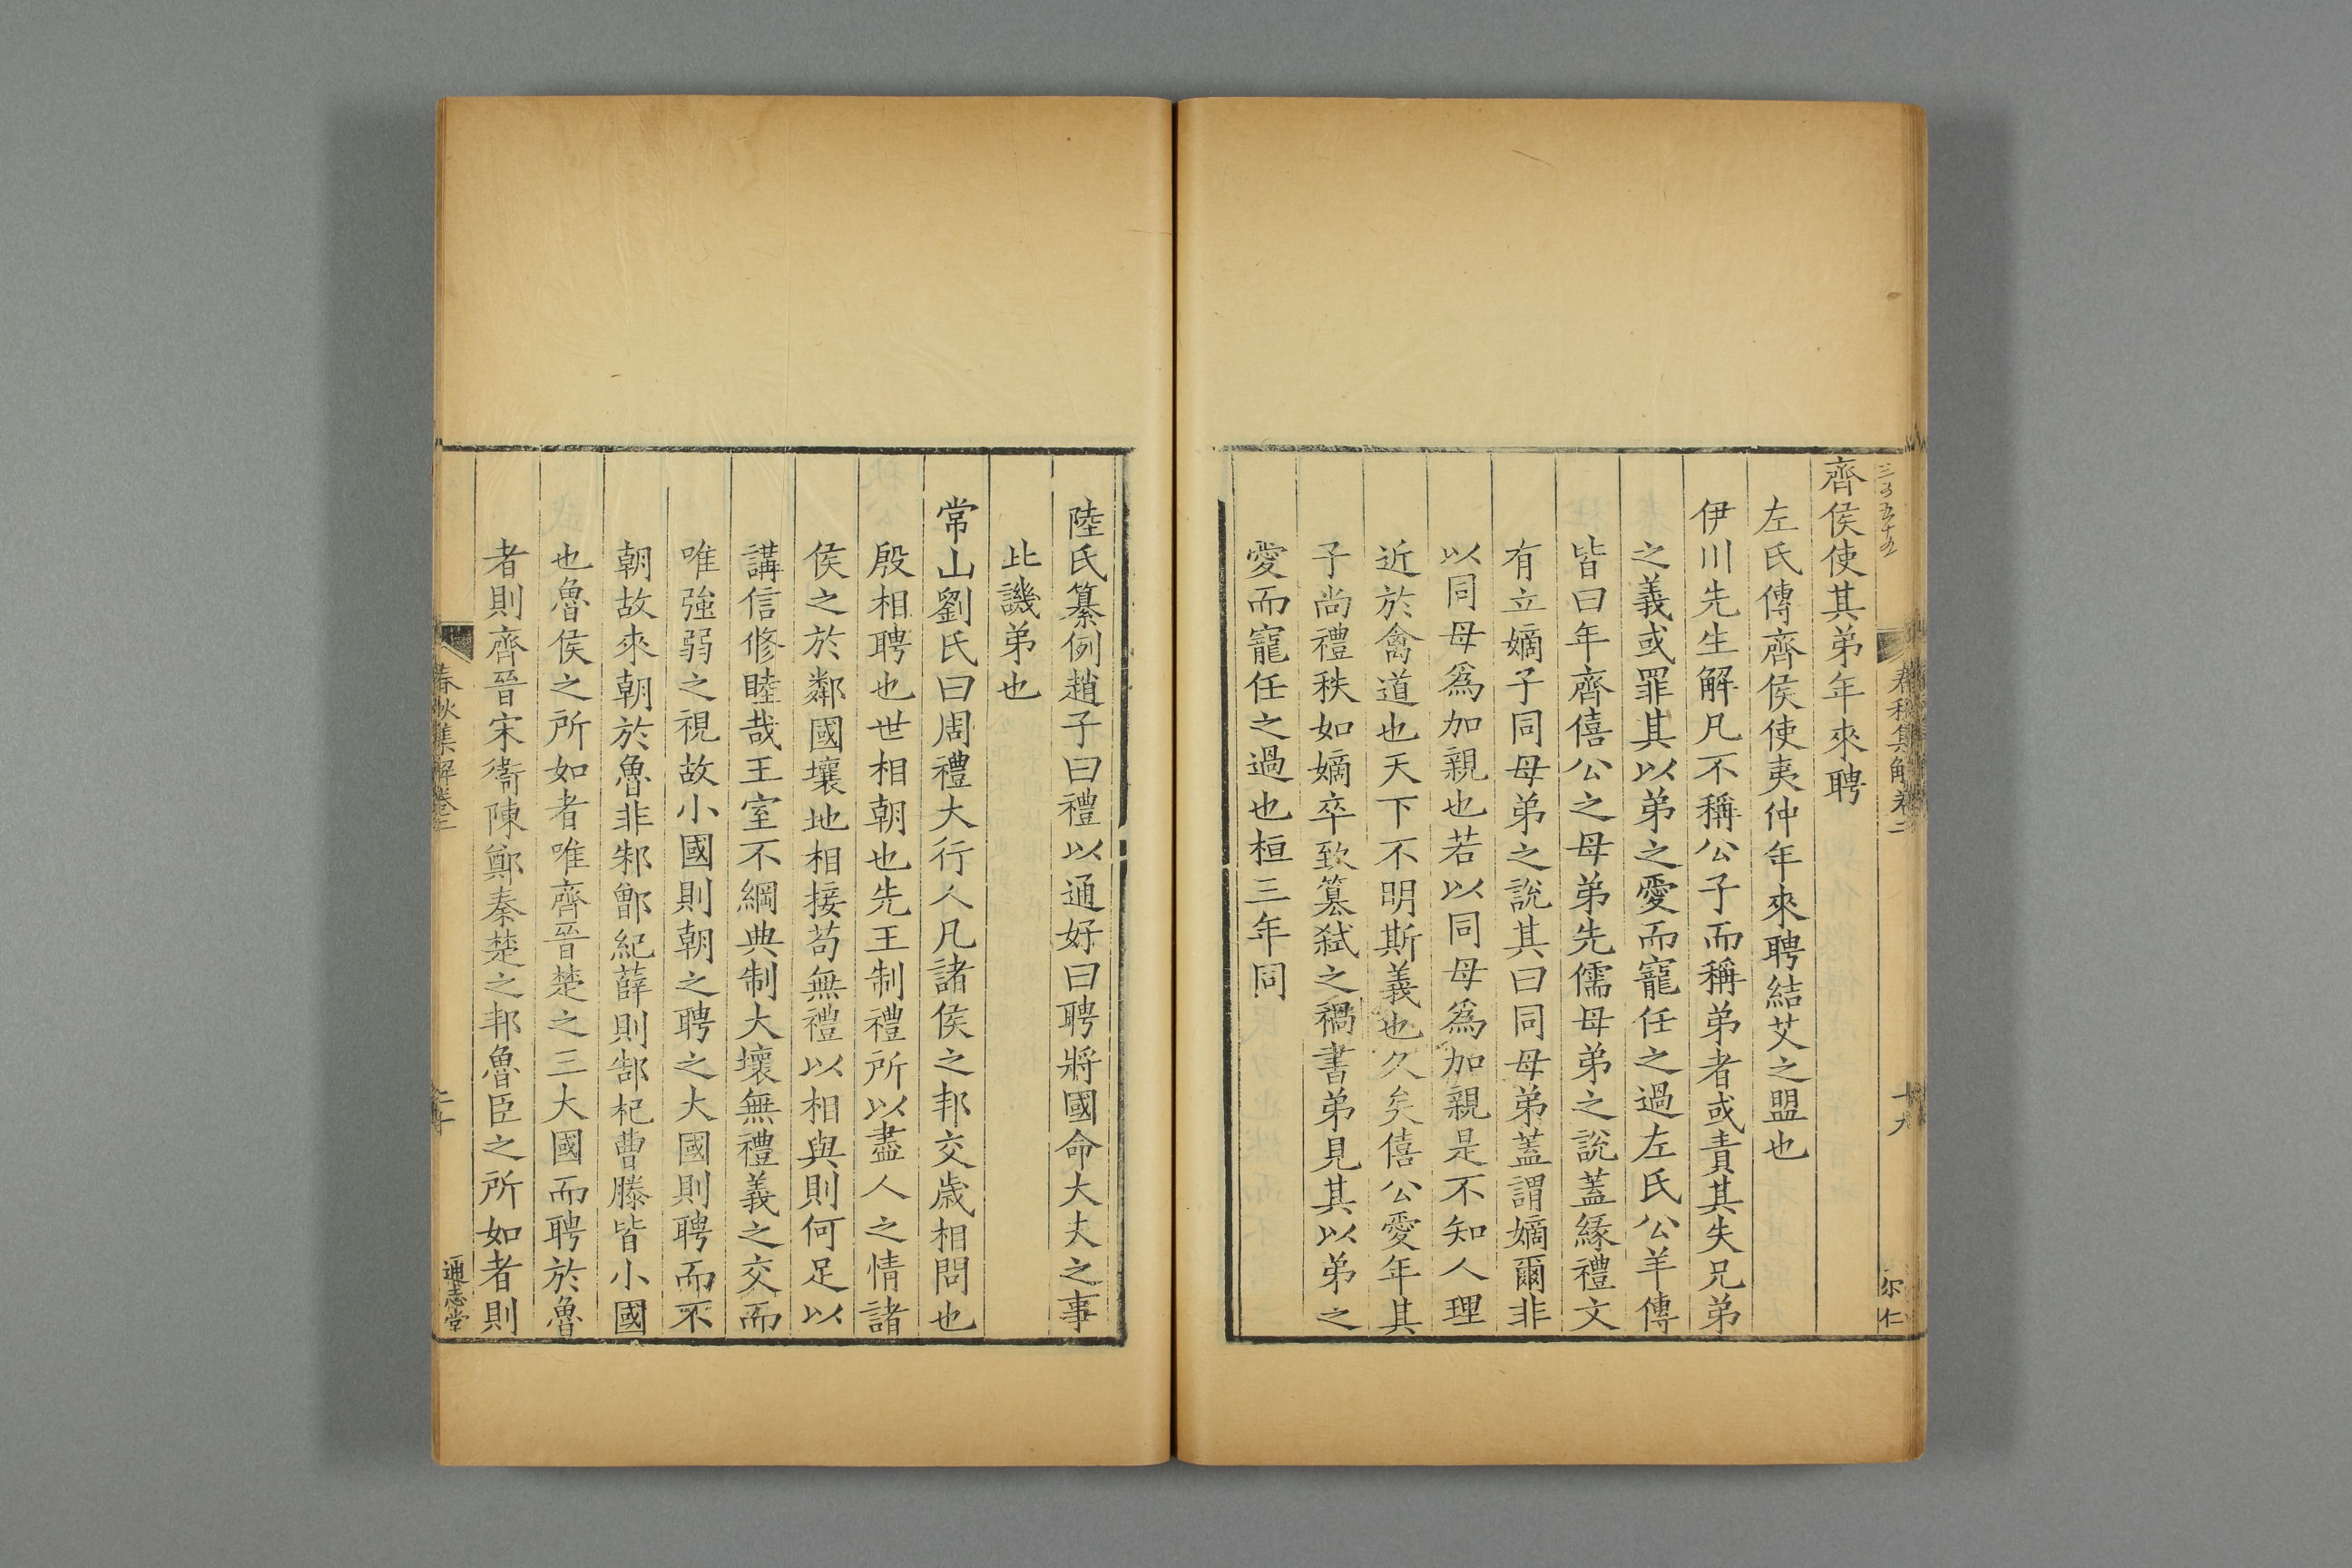 春秋集解卷二
十九
尔仁
齊侯使其弟年來聘
左氏傳齊侯使夷仲年來聘結艾之盟也
伊川先生解凡不稱公子而稱弟者或責其失兄弟
之義或罪其以弟之愛而寵任之過左氏公羊傳
皆曰年齊僖公之母弟先儒母弟之說蓋緣禮文
有立嫡子同母弟之說其曰同母弟蓋謂嫡爾非
以同母爲加親也若以同母爲加親是不知人理
近於禽道也天下不明斯義也久矣僖公愛年其
子尚禮秩如嫡卒致簒弑之禍書弟見其以弟之
愛而寵任之過也桓三年同
陸氏纂例趙子曰禮以通好曰聘將國命大夫之事
此譏弟也
常山劉氏曰周禮大行人凡諸侯之邦交歲相問也
殷相聘也世相朝也先王制禮所以盡人之情諸
侯之於鄰國壤地相接苟無禮以相與則何足以
講信修睦哉王室不綱典制大壞無禮義之交而
唯強弱之視故小國則朝之聘之大國則聘而不
朝故來朝於魯非邾鄫紀薛則郜杞曹滕皆小國
也魯侯之所如者唯齊晉楚之三大國而聘於魯
者則齊晉宋衛陳鄭秦楚之邦魯臣之所如者則
春秋集解卷二
二十
通志堂